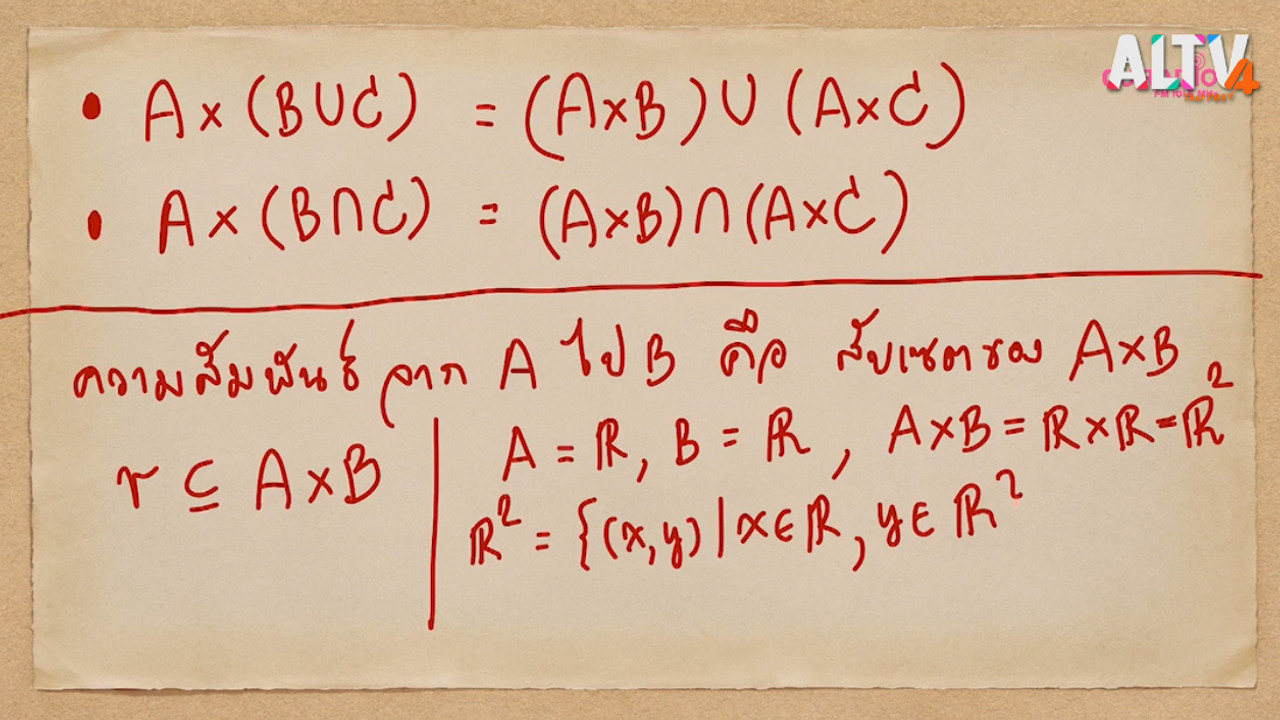 • A × (B ∪ C) = (A×B) ∪ (A×C)
• A × (B ∩ C) = (A×B) ∩ (A×C)
ความสัมพันธ์จาก A ไป B คือ สับเซตของ A×B
r ⊆ A×B
A = ℝ, B = ℝ, A×B = ℝ×ℝ = ℝ²
ℝ² = {(x,y) | x∈ℝ, y∈ℝ²
ALTV4